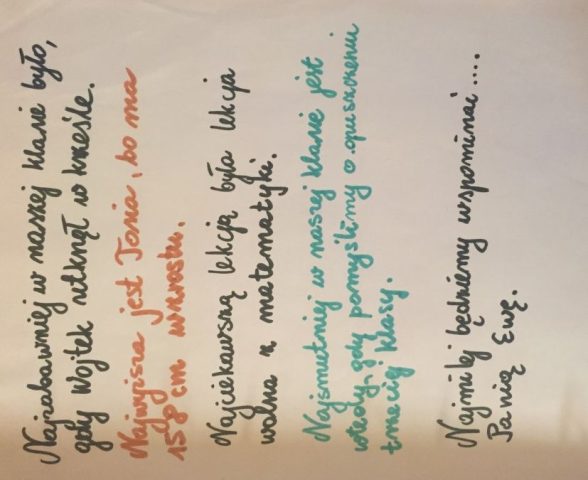 Najzabawniej w naszej klasie było,
gdy Wojtek utknął w krześle.
Najwyższa jest Tosia, bo ma
158 cm wzrostu.
Najciekawszą lekcją była lekcja
wolna z matematyki.
Najsmutniej w naszej klasie jest
wtedy, gdy pomyślimy o opuszczeniu
trzeciej klasy.
Najmilej będziemy wspominać....
Panią Ewę.